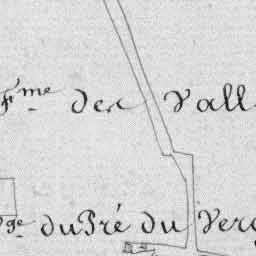 F.me des Vall
V.ge du Pré du Verg